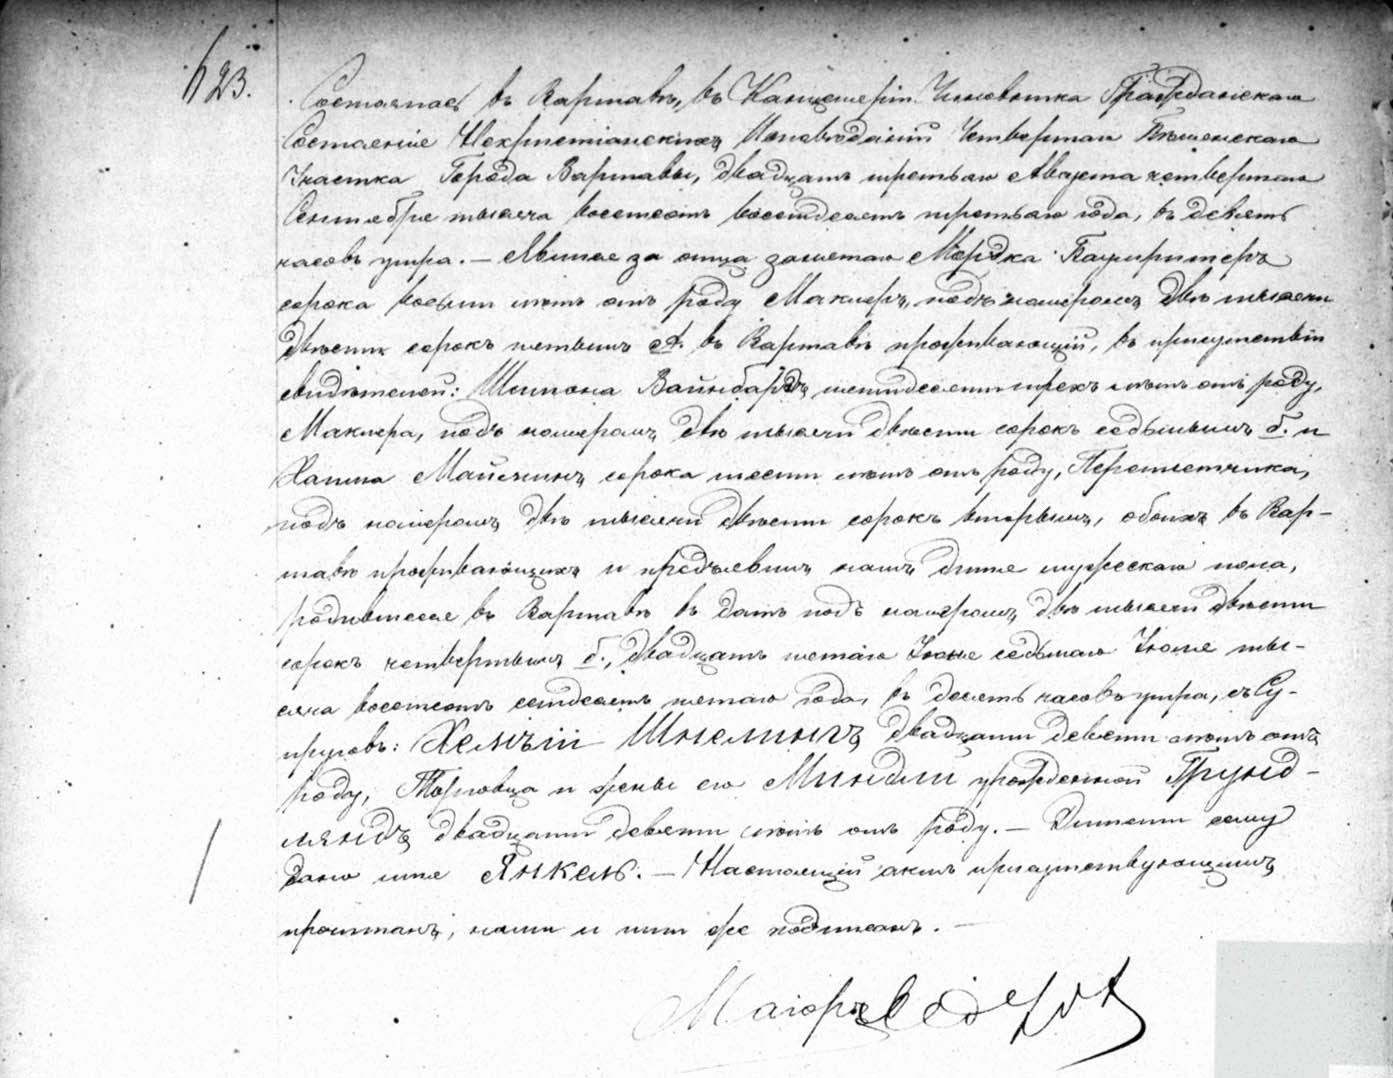 623.
Состоялось въ Варшавѣ, въ Канцеляріи Чиновника Гражданскаго
Состоянія Нехристіанскихъ Исповѣданій Четвертаго
Участка Города Варшавы, двадцать третьяго Августа четвертаго
Сентября тысяча восемсотъ восемдесятъ третьяго года, въ девять
часовъ утра. — Явился за отца замѣтаю Мордка
сорока восьми лѣтъ отъ роду Маклеръ, подъ номеромъ двѣ тысячи
двѣсти сорокъ пятымъ А. въ Варшавѣ проживающій, въ присутствіи
свидѣтелей: Шимона шестидесяти трехъ лѣтъ отъ роду,
Маклера, подъ номеромъ двѣ тысячи двѣсти сорокъ седьмымъ б. и
Хаима сорока шести лѣтъ отъ роду, Переплетчика,
подъ номеромъ двѣ тысячи двѣсти сорокъ вторымъ, обоихъ въ Вар-
шавѣ проживающихъ и предъявилъ намъ дитя мужескаго пола,
родившееся въ Варшавѣ въ домѣ подъ номеромъ двѣ тысячи двѣсти
сорокъ четвертымъ б., двадцать пятаго Іюня седьмаго Іюля ты-
сяча восемсотъ семдесятъ пятаго года, въ десять часовъ утра, съ Су-
пруговъ: Шнелингъ двадцати девяти лѣтъ отъ
роду, Торговца и жены его Миндли урожденной Грунд-
ляндъ двадцати девяти лѣтъ отъ роду. — Дитяти сему
дано имя Янкель. — Настоящій актъ присутствующимъ
прочитанъ, нами и ими же подписанъ. —
Маіоръ